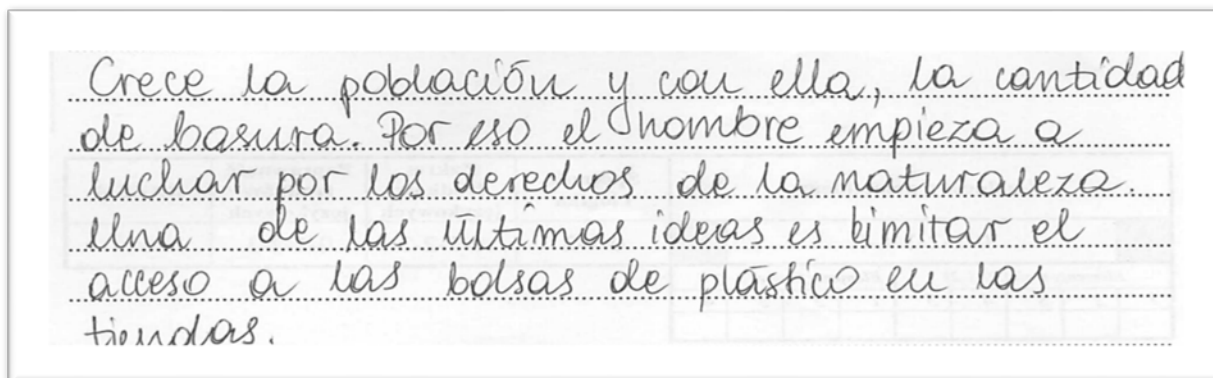 Crece la población y con ella, la cantidad
de basura. Por eso el hombre empieza a
luchar por los derechos de la naturaleza.
Una de las últimas ideas es limitar el
acceso a las bolsas de plástico en las
tiendas.